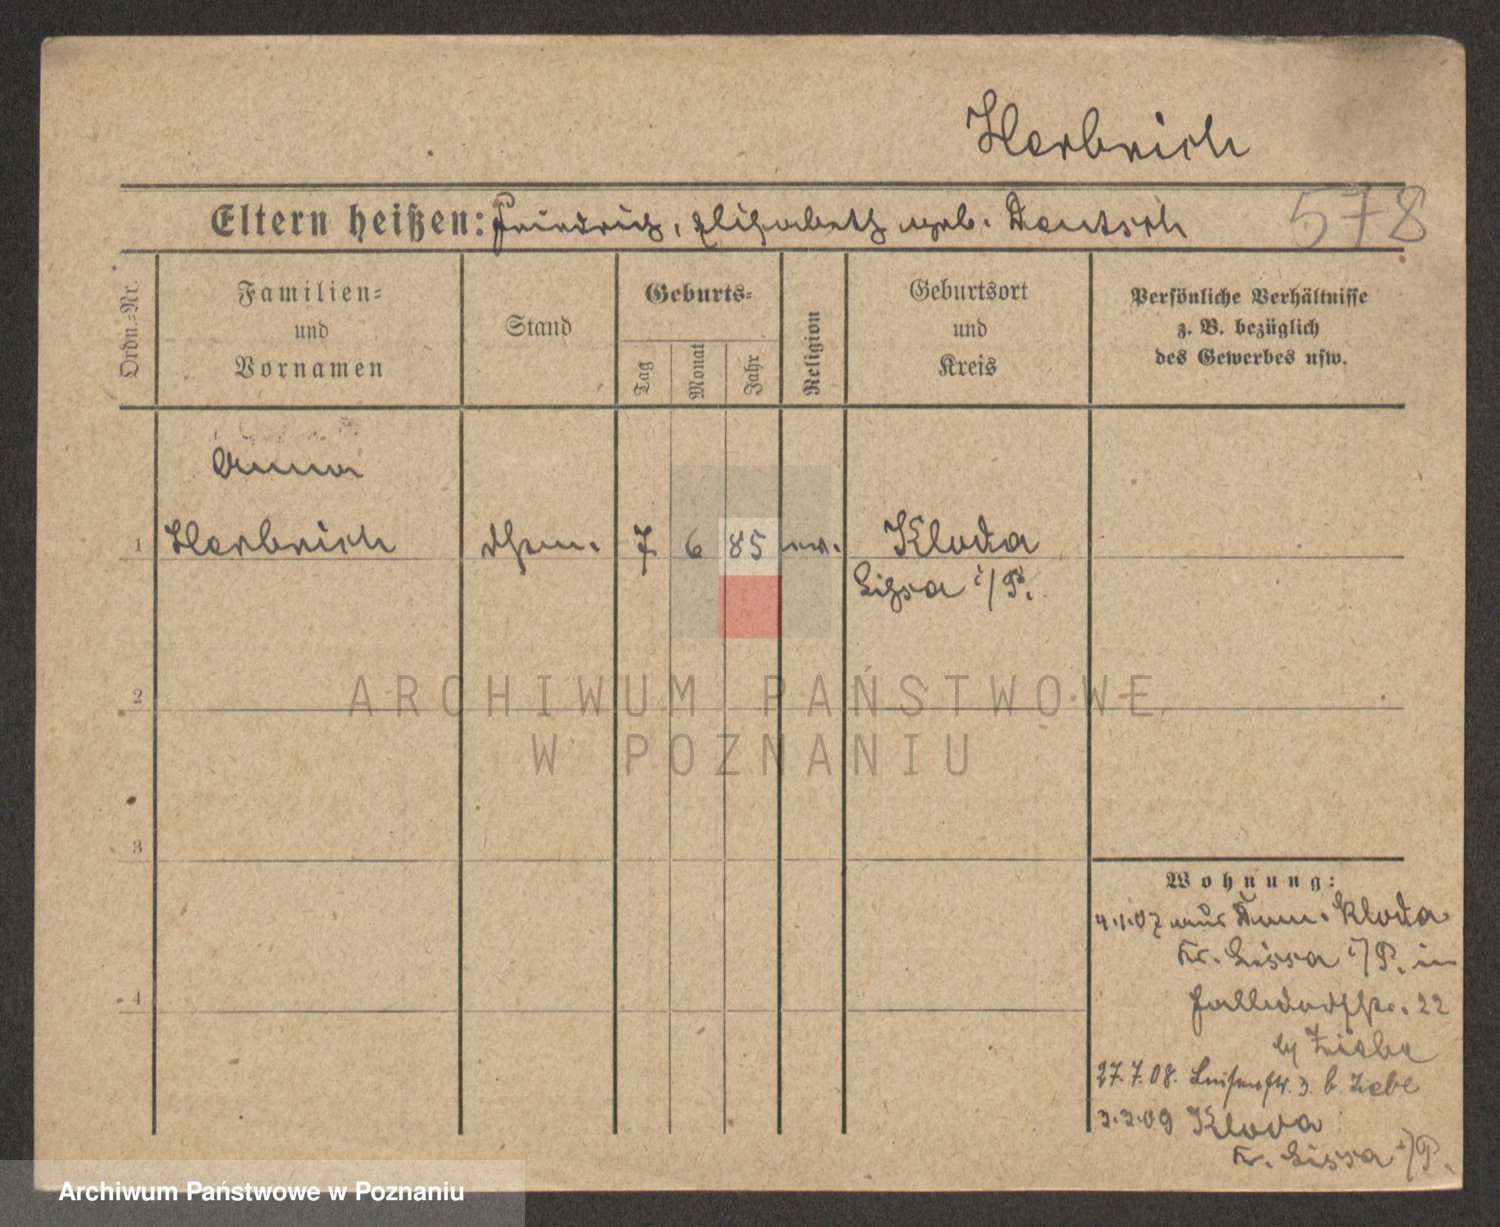 Herbrich
Eltern heißen: Friedrich, Elisabeth geb. Deutsch 578
Ordn.-Nr.
Familien-
und
Vornamen
Stand
Geburts-
Tag
Monat
Jahr
Religion
Geburtsort
und
Kreis
Persönliche Verhältnisse
z. B. bezüglich
des Gewerbes usw.
Anna
1 Herbrich 7 6 85 ev. Kloda
Lissa i/P.
2
ARCHIWUM PAŃSTWOWE
W POZNANIU
3
Wohnung:
4.1.07 aus Dom. Kloda
Kr. Lissa i/P. in
4
22
by
27.7.08. 3. b.
3.3.09 Kloda
Kr. Lissa i/P.
Archiwum Państwowe w Poznaniu